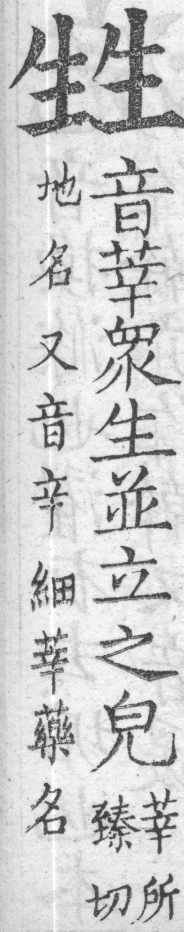 甡
音莘眾生並立之皃莘所臻切
地名又音辛細莘藥名